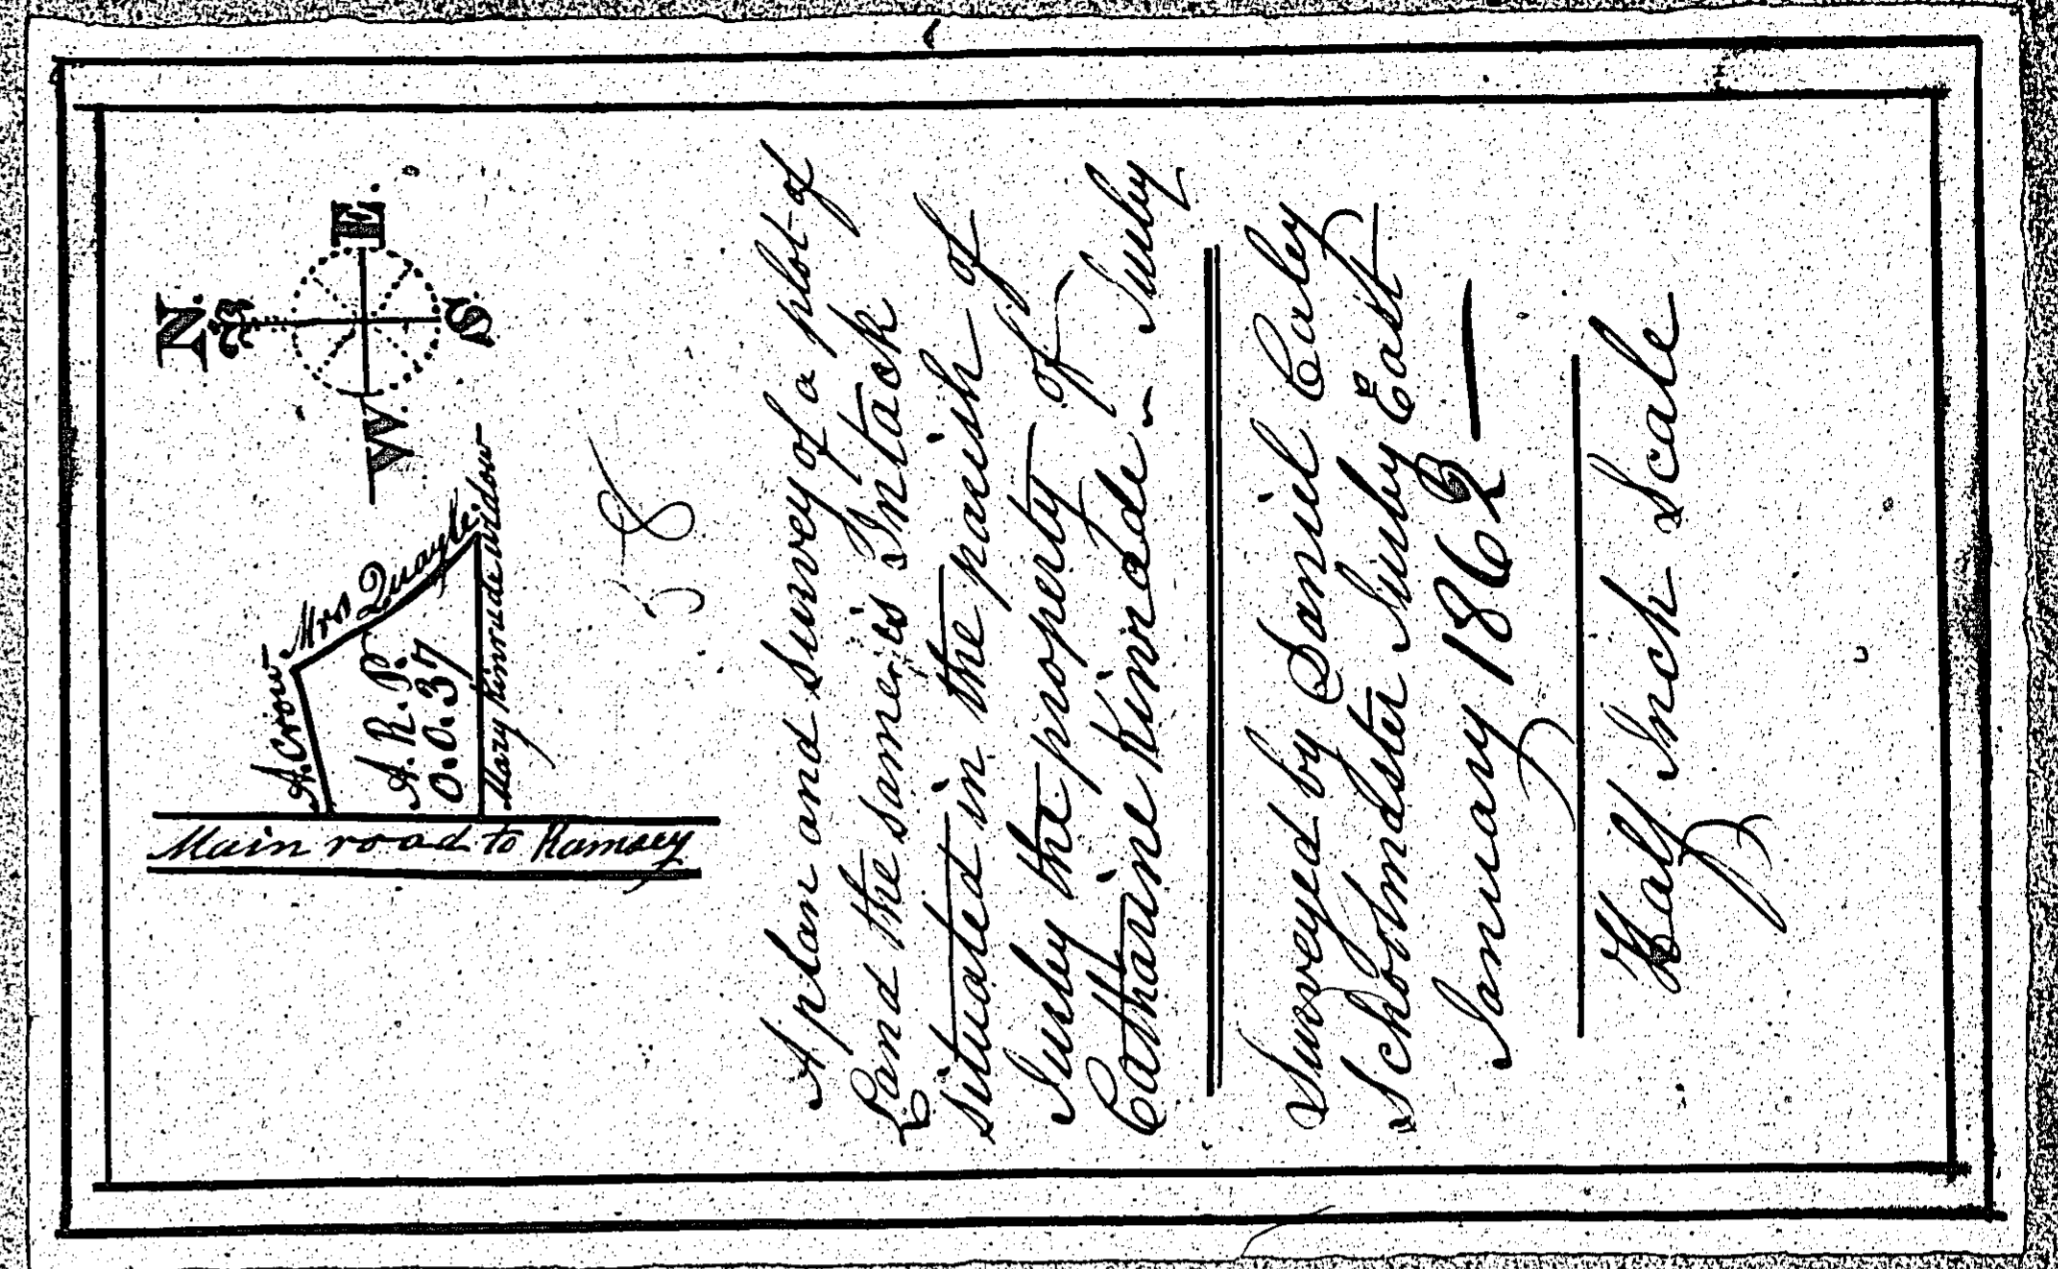 N.
W.
E.
S.
A. Crow
Mrs Quayle.
A. R. P.
0. 0. 37
Mary Kinrade widow
Main road to Ramsey
58
A plan and survey of a plot of
Land the same is Intack
situated in the parish of
Jurby the property of
Catharine Kinrade - Jurby
Surveyed by Daniel Caley
Scholmaster Jurby East
January 1862 —
Half Inch Scale